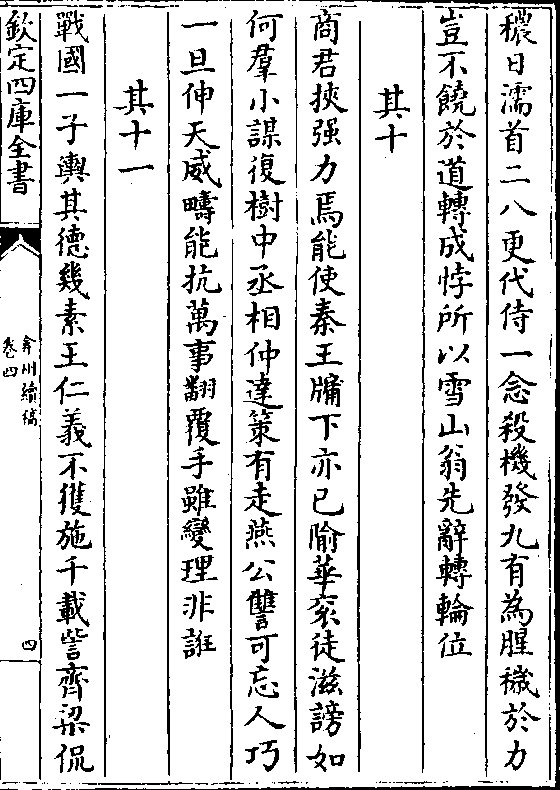 穠日濡首二八更代侍一念殺機發九有為腥穢於力
豈不饒於道轉成悖所以雪山翁先辭轉輪位
其十
商君挾强力焉能使秦王牖下亦已隃華衮徒滋謗如
何羣小謀復樹中丞相仲達策有走燕公讐可忘人巧
一旦伸天威疇能抗萬事翻覆手雖變理非誑
其十一
戰國一子輿其德幾素王仁義不獲施千載訾齊梁侃
欽定四庫全書
弇州續稿
卷四
四